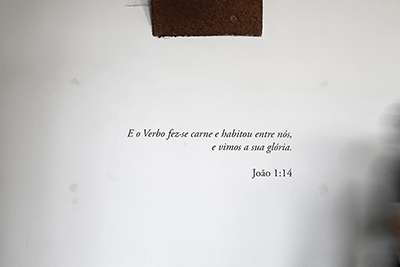 E o Verbo fez-se carne e habitou entre nós,
e vimos a sua glória.
João 1:14